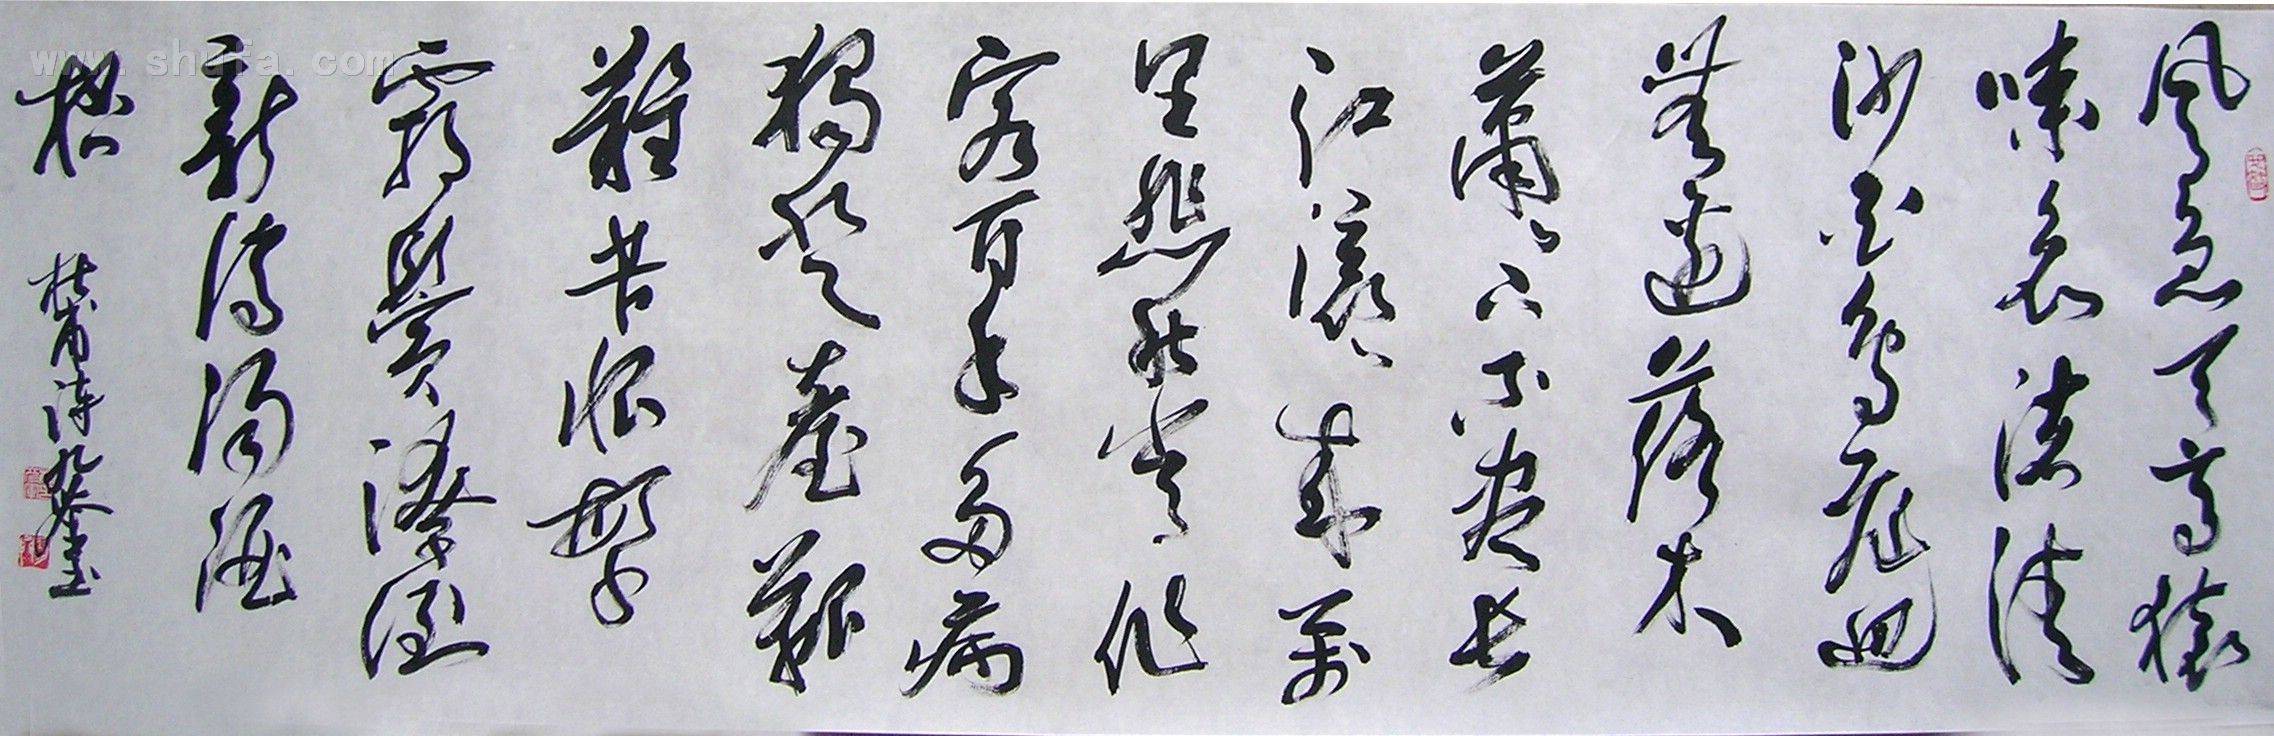 風急天高猿
嘯哀渚清
沙白鳥飛迴
無邊落木
蕭々下不盡長
江滾々來萬
里悲秋常作
客百年多病
獨登臺艱
難苦恨繁
霜鬢潦倒
新停濁酒
杯
杜甫詩
www.shufa.com